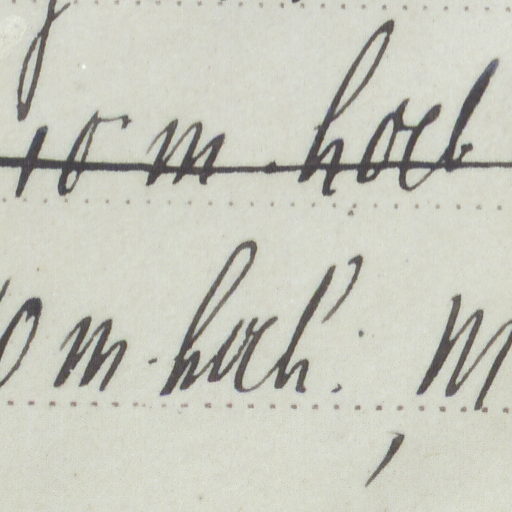 10 m. hoch
0 m. hoch. M